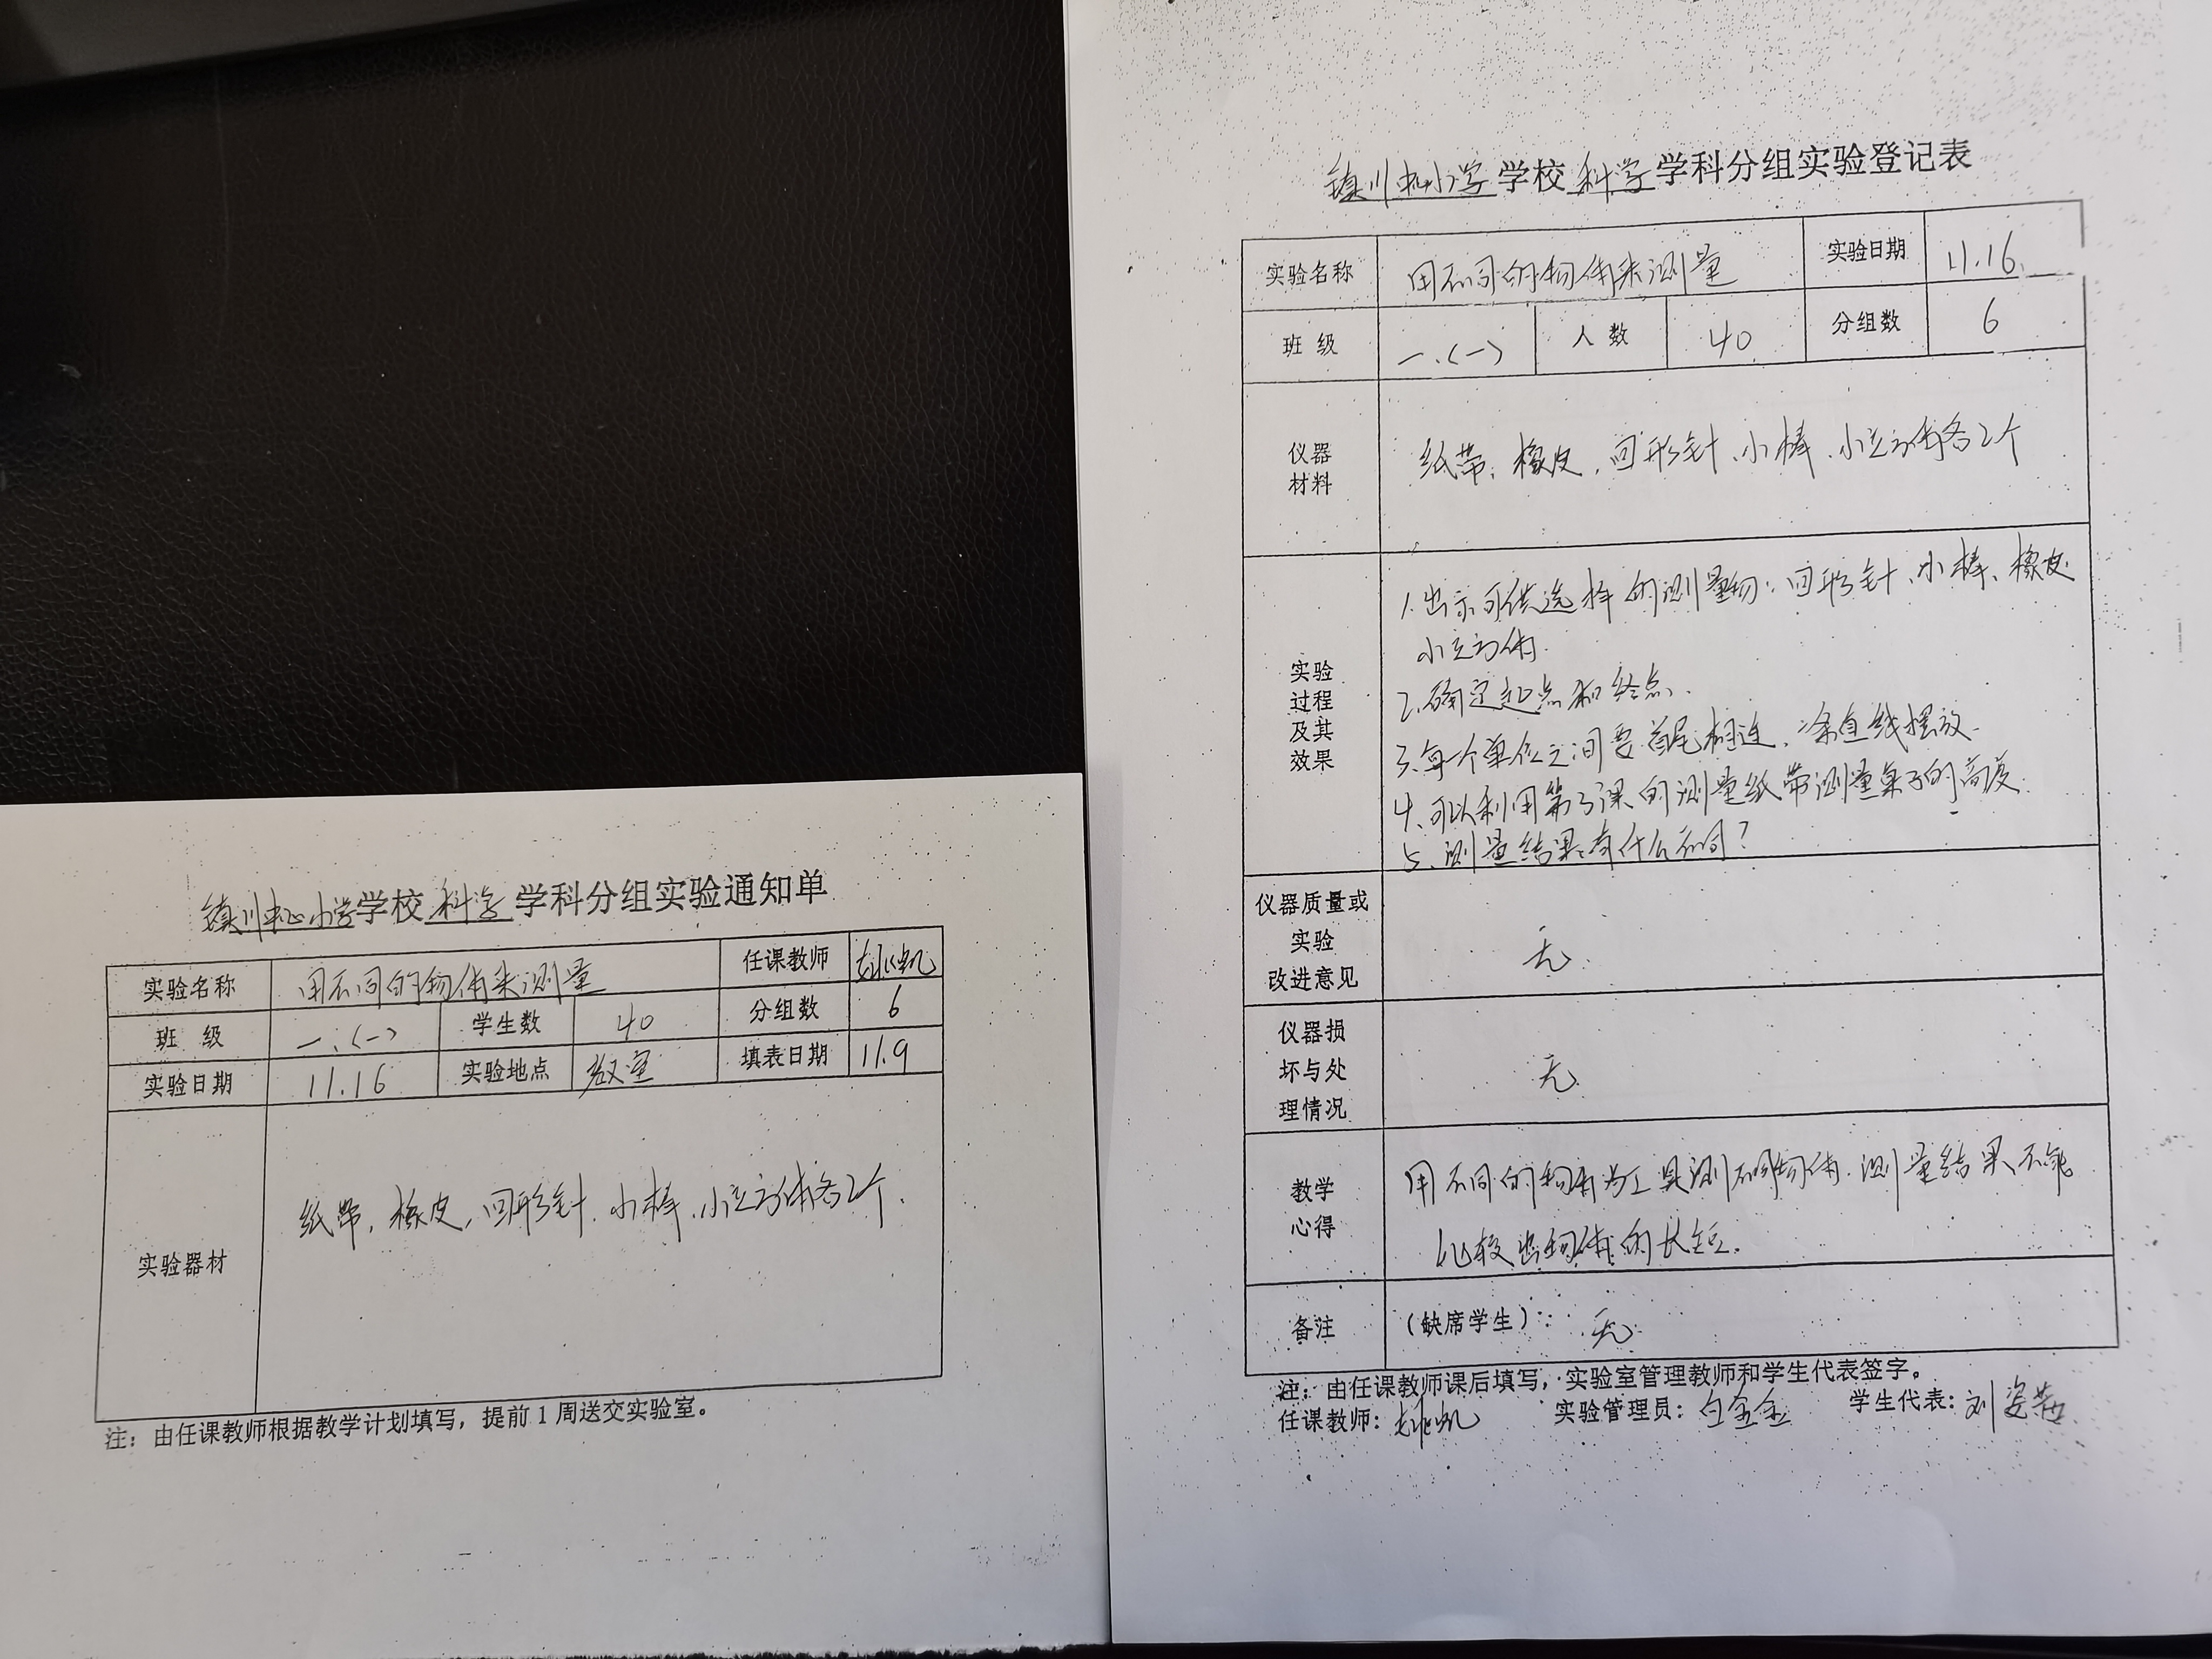 镇川中心小学学校科学学科分组实验通知单
实验名称 用不同的物体来测量 任课教师
班 级 一.(一) 学生数 40 分组数 6
实验日期 11.16 实验地点 教室 填表日期 11.9
实验器材 纸带,橡皮,回形针.小棒.小立方体各2个.
注:由任课教师根据教学计划填写,提前1周送交实验室。
镇川中心小学学校科学学科分组实验登记表
实验名称 用不同的物体来测量 实验日期 11.16.
班 级 一.(一) 人 数 40 分组数 6
仪器
材料
纸带,橡皮,回形针、小棒、小立方体各2个
实验
过程
及其
效果
1.出示可供选择的测量物:回形针、小棒、橡皮
小立方体.
2.确定起点和终点、
3.每一个单位之间要首尾相连、一条直线摆放.
4.可以利用第3课的测量纸带测量桌子的高度.
5.测量结果有什么不同?
仪器质量或
实验
改进意见
无.
仪器损
坏与处
理情况
无.
教学
心得
用不同的物体为工具测不同物体.测量结果不能
比较出物体的长短.
备注 (缺席学生): 无
注:由任课教师课后填写,实验室管理教师和学生代表签字。
任课教师: 实验管理员:白金金 学生代表:刘